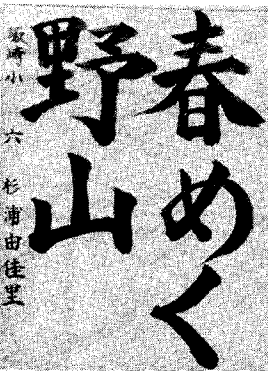 春めく
野山
坂崎小 六 杉浦由佳里